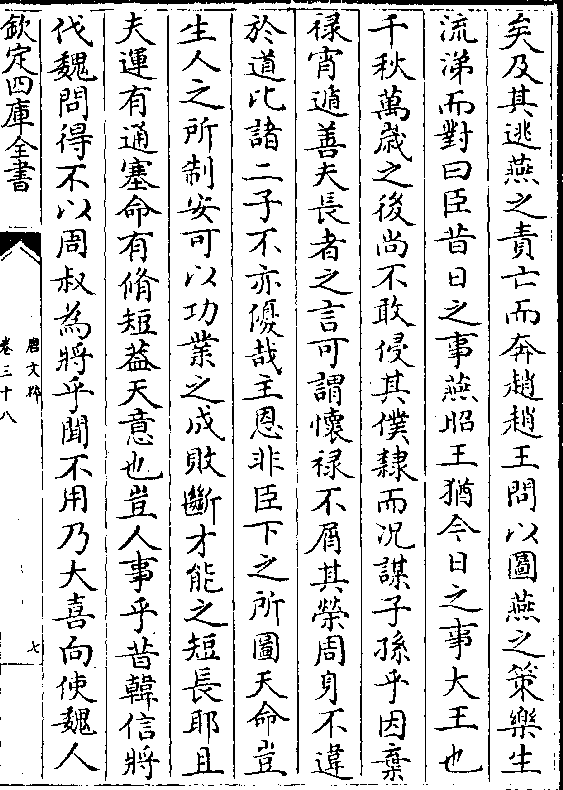 矣及其逃燕之責亡而奔趙趙王問以圖燕之策樂生
流涕而對曰臣昔日之事燕昭王猶今日之事大王也
千秋萬歲之後尚不敢侵其僕隸而况謀子孫乎因棄
祿宵遁善夫長者之言可謂懷祿不屑其榮周身不違
於道比諸二子不亦優哉王恩非臣下之所圖天命豈
生人之所制安可以功業之成敗斷才能之短長耶且
夫運有通塞命有脩短葢天意也豈人事乎昔韓信將
伐魏問得不以周叔為將乎聞不用乃大喜向使魏人
欽定四庫全書
唐文粹
卷三十八
七